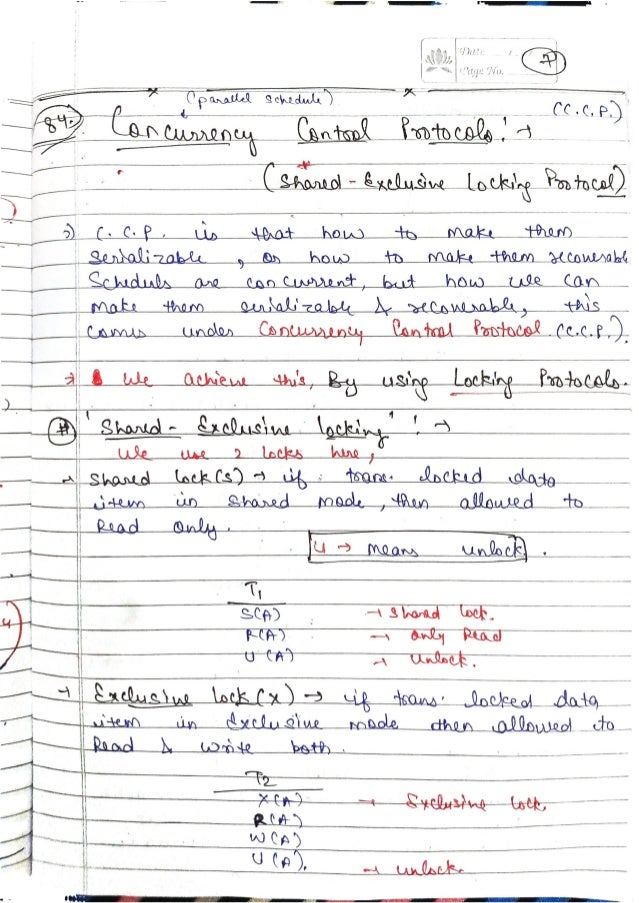 Date
Page No.
7
(parallel schedule)
(C.C.P.)
84. Concurrency Control Protocols! →
(Shared-Exclusive Locking Protocol)
→) C.C.P. is that how to make them
Serializable, or how to make them recoverable
Scheduls are concurrent, but how we can
make them serializable & recoverable, this
comes under Concurrency Control Protocol (C.C.P.).
→ We achieve this, By using Locking Protocols.
# 'Shared-Exclusive locking' ! →
we use 2 locks here,
→ Shared lock(S) → if trans. locked data
item in shared mode, then allowed to
Read only.
U → means unlock.
T1
S(A) → Shared lock.
R(A) → Only Read
U(A) → Unlock.
→ Exclusive lock(X) → if trans. locked data
item in exclusive mode then allowed to
Read & write both.
T2
X(A) → Exclusive lock,
R(A)
W(A)
U(A). → unlock.